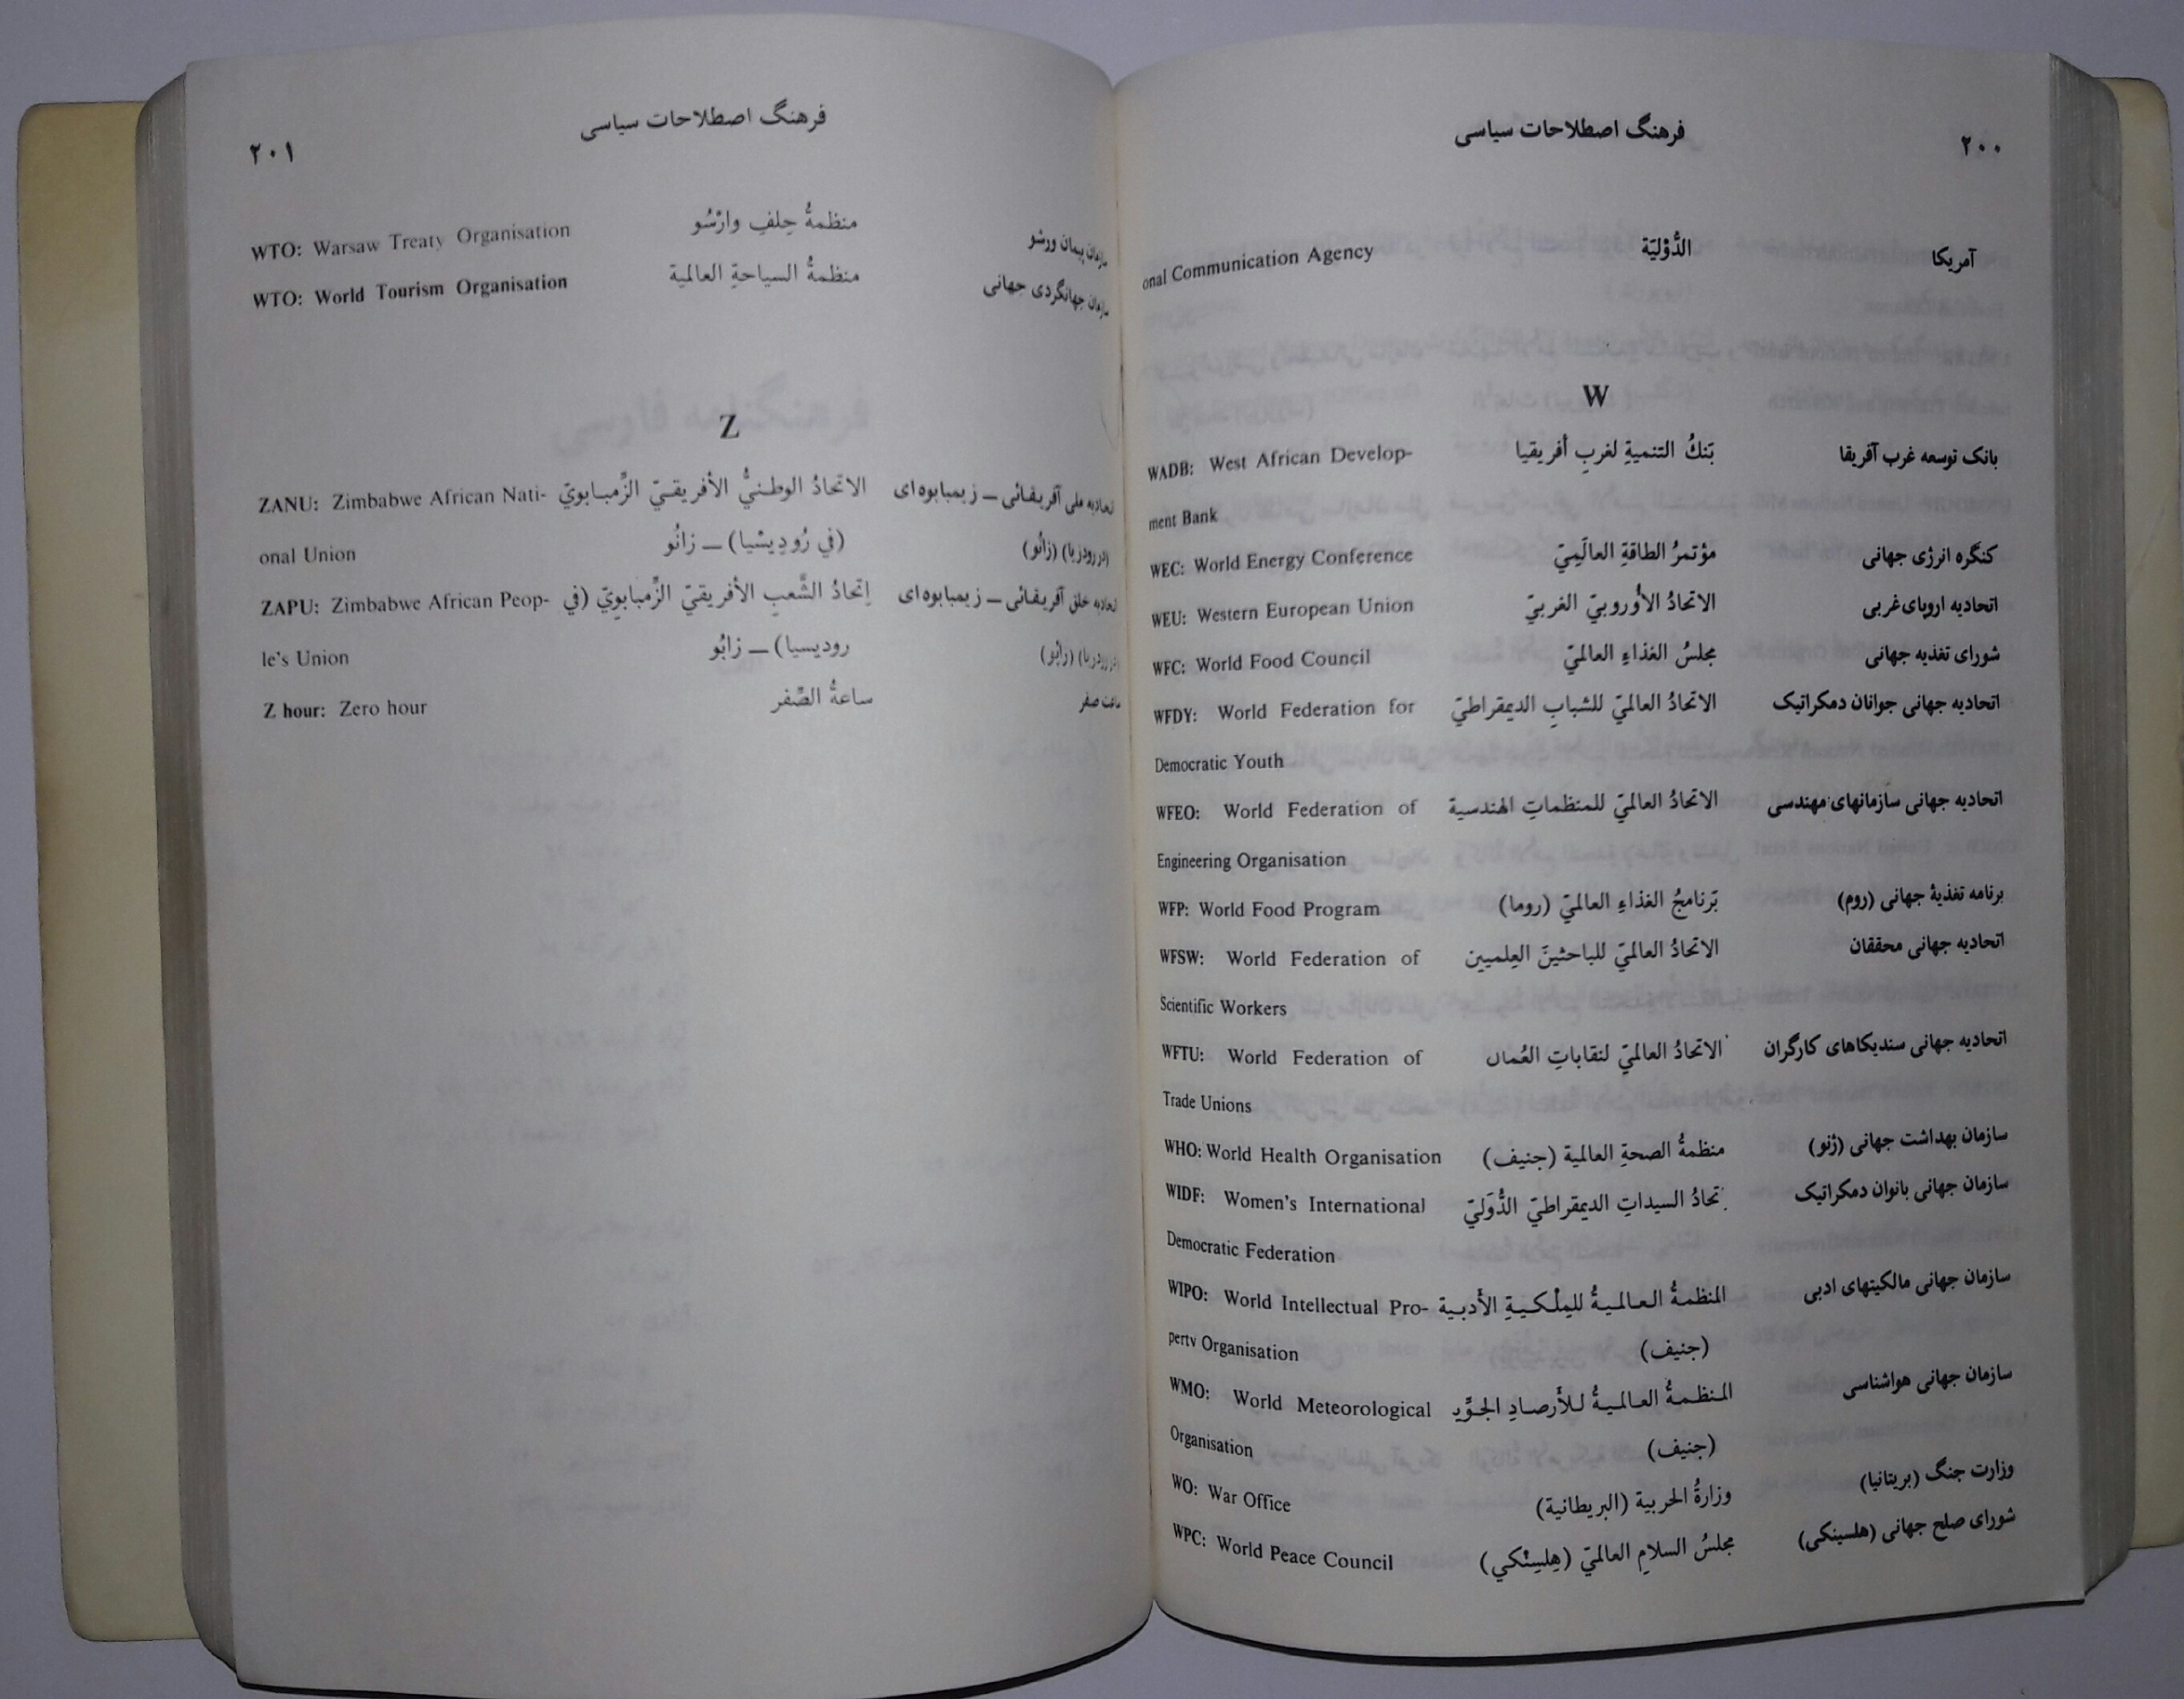 ۲۰۰
فرهنگ اصطلاحات سیاسی
onal Communication Agency الدُّوْليّة آمریکا
W
WADB: West African Develop- بَنكُ التنميةِ لغربِ أفريقيا بانک توسعه غرب آفریقا
ment Bank
WEC: World Energy Conference مؤتمرُ الطاقةِ العالَمِيّ کنگره انرژی جهانی
WEU: Western European Union الاتحادُ الأُوروبيّ الغربيّ اتحادیه اروپای‌غربی
WFC: World Food Council مجلسُ الغذاءِ العالميّ شورای تغذیه جهانی
WFDY: World Federation for الاتحادُ العالميّ للشبابِ الديمقراطيّ اتحادیه جهانی جوانان دمکراتیک
Democratic Youth
WFEO: World Federation of الاتحادُ العالميّ للمنظماتِ الهندسية اتحادیه جهانی سازمانهای مهندسی
Engineering Organisation
WFP: World Food Program بَرنامجُ الغذاءِ العالميّ (روما) برنامه تغذیهٔ جهانی (روم)
WFSW: World Federation of الاتحادُ العالميّ للباحثينَ العِلميين اتحادیه جهانی محققان
Scientific Workers
WFTU: World Federation of الاتحادُ العالميّ لنقاباتِ العُمال اتحادیه جهانی سندیکاهای کارگران
Trade Unions
WHO: World Health Organisation منظمةُ الصحةِ العالمية (جنيف) سازمان بهداشت جهانی (ژنو)
WIDF: Women's International تحادُ السيداتِ الديمقراطيّ الدُّوَليّ سازمان جهانی بانوان دمکراتیک
Democratic Federation
WIPO: World Intellectual Pro- المنظمةُ العالميةُ للمِلْكيةِ الأَدبية سازمان جهانی مالکیتهای ادبی
perty Organisation (جنيف)
WMO: World Meteorological المنظمةُ العالميةُ للأَرصادِ الجوّيد سازمان جهانی هواشناسی
Organisation (جنيف)
WO: War Office وزارةُ الحربية (البريطانية) وزارت جنگ (بریتانیا)
WPC: World Peace Council مجلسُ السلامِ العالميّ (هِلسِنْكي) شورای صلح جهانی (هلسینکی)
فرهنگ اصطلاحات سیاسی
۲۰۱
WTO: Warsaw Treaty Organisation منظمةُ حِلفِ وارْسُو سازمان پیمان ورشو
WTO: World Tourism Organisation منظمةُ السياحةِ العالمية سازمان جهانگردی جهانی
Z
ZANU: Zimbabwe African Nati- الاتحادُ الوطنيُّ الأفريقيّ الزِّمبابويّ اتحادیه ملی آفریقائی – زیمبابوه‌ای
onal Union (في رُودِيسْيا) – زانُو (در رودزیا) (زانُو)
ZAPU: Zimbabwe African Peop- إتحادُ الشَّعبِ الأفريقيّ الزِّمبابوِيّ (في اتحادیه خلق آفریقائی – زیمبابوه‌ای
le's Union روديسيا) – زابُو (در رودزیا) (زاپو)
Z hour: Zero hour ساعةُ الصِّفر ساعت صفر